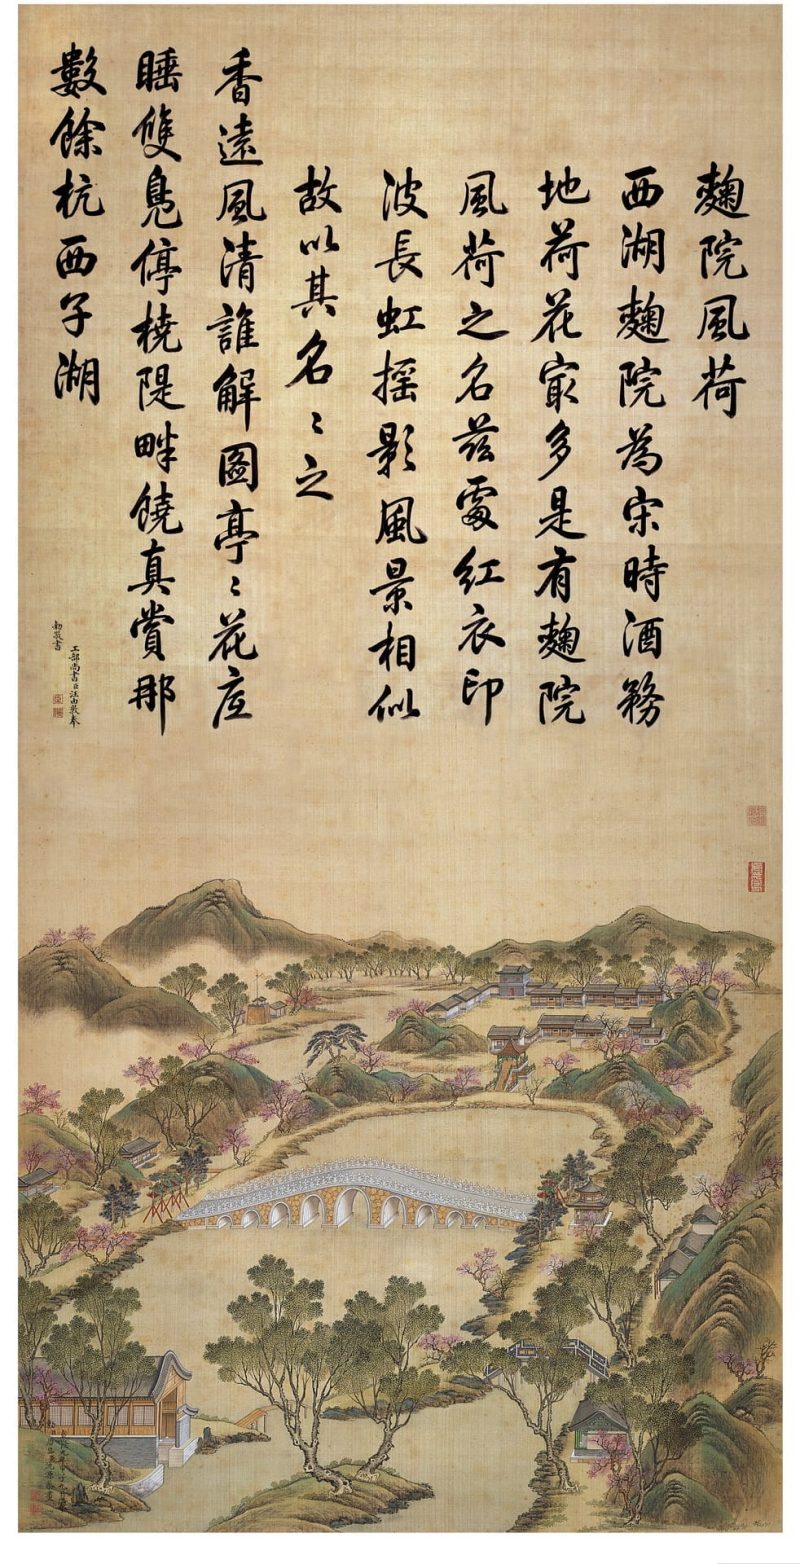 麴院風荷
西湖麴院為宋時酒務
地荷花㝡多是有麴院
風荷之名兹處紅衣印
波長虹搖影風景相似
故以其名〻之
香遠風清誰解圖亭〻花底
睡雙鳧停橈隄畔饒真賞那
數餘杭西子湖
工部尚書臣汪由敦奉
勅敬書